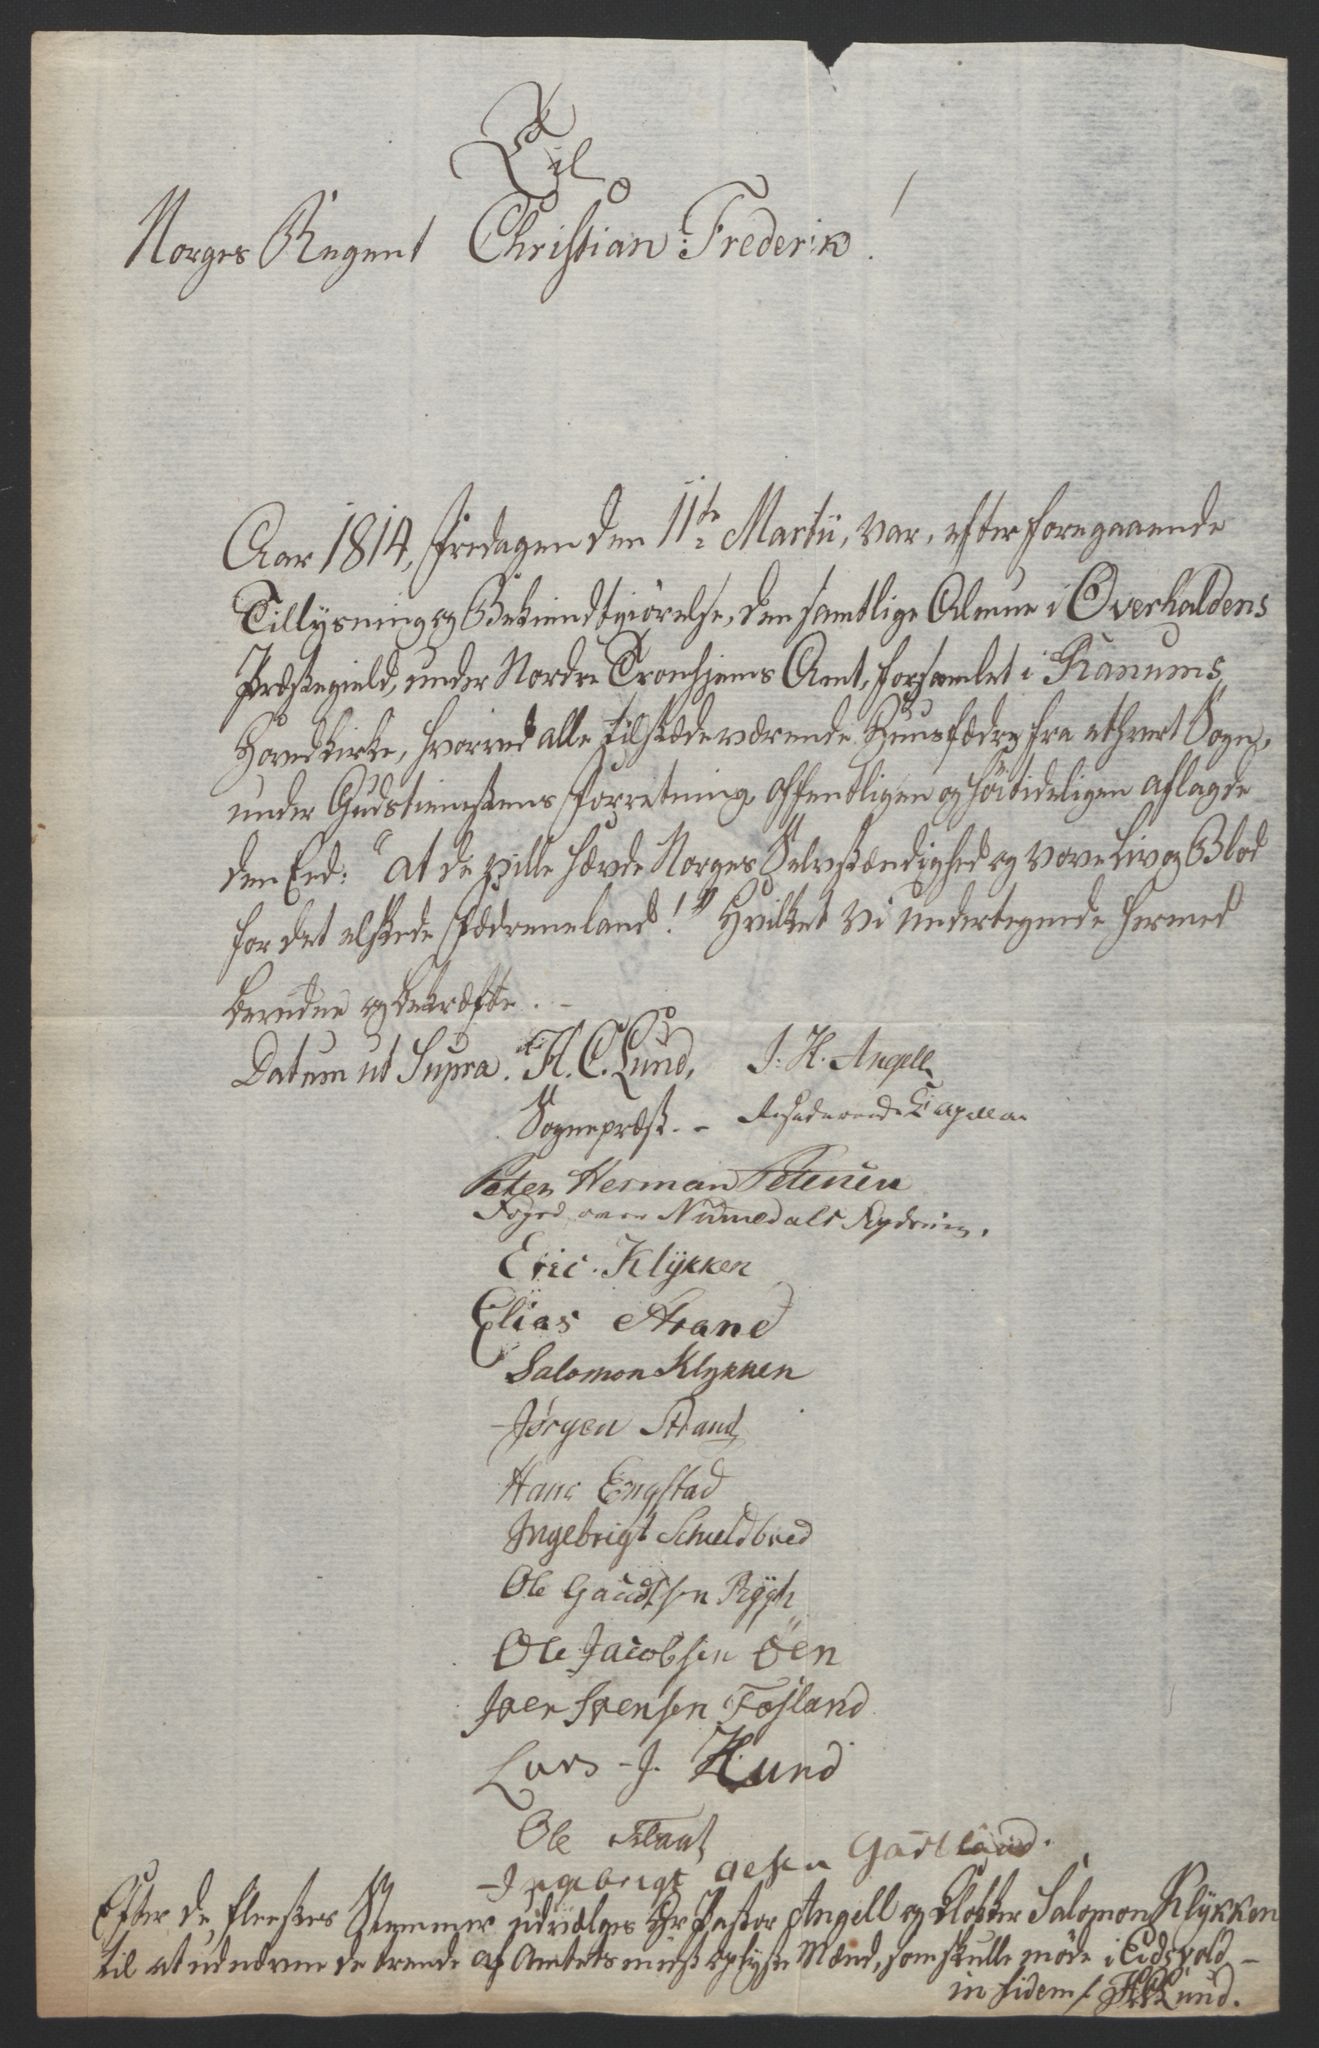 Til
Norges Regent Christian Frederik!
Aar 1814, Fredagen den 11te Martii, var, efter foregaaende
Tillysning og Bekiendtgiørelse, den samtlige Almue i Overhaldens
Præstegield, under Nordre Tronhjems Amt, forsamlet i Ranums
Hovedkirke, hvorved alle tilstædeværende Huusfædre fra ethvert Sogn,
under Gudstienestens Forretning, offentligen og høitideligen aflagde
den Eed: "at de ville hævde Norges Selvstændighed og vove Liv og Blod
for det elskede Fædreneland!" Hvilket vi undertegnede hermed
bevidne og bekræfte. -
Datum ut Supra. H. C. Lund, J. H. Angell
Sognepræst. - Residerende Capellan
Peter Herman Petersen
Foged over Nummedals Fogderie.
Eric. Klykken
Elias Strand
Salomon Klykken
Jørgen Strand
Hans Engstad
Ingebrigt Schieldbred
Ole Hansen Rygh
Ole Jacobsen Øen
Iver Svensen Fosland
Lars J. Hund
Ole Flaat
Ingebrigt Gartland.
Efter de fleestes Stemmer udvalges Hr Pastor Angell og Klokker Salomon Klykken
til at udnævne de trende af Amtets meest oplyste Mænd, som skulle møde i Eidsvold -
in fidem / H C Lund.